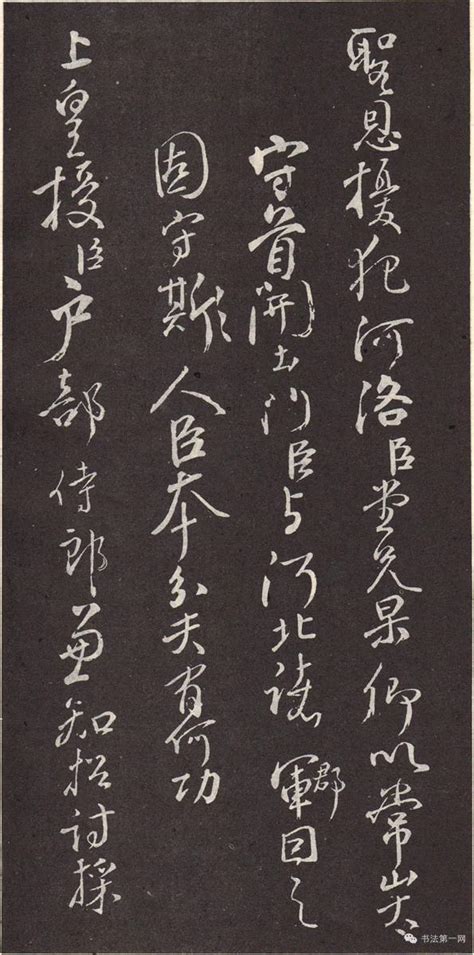 聖恩擾犯河洛臣堂兄杲卿以常山太
守首開土門臣与河北諸郡軍因之
固守斯人臣本分夫有何功
上皇授臣户部侍郎兼知招討採
书法第一网